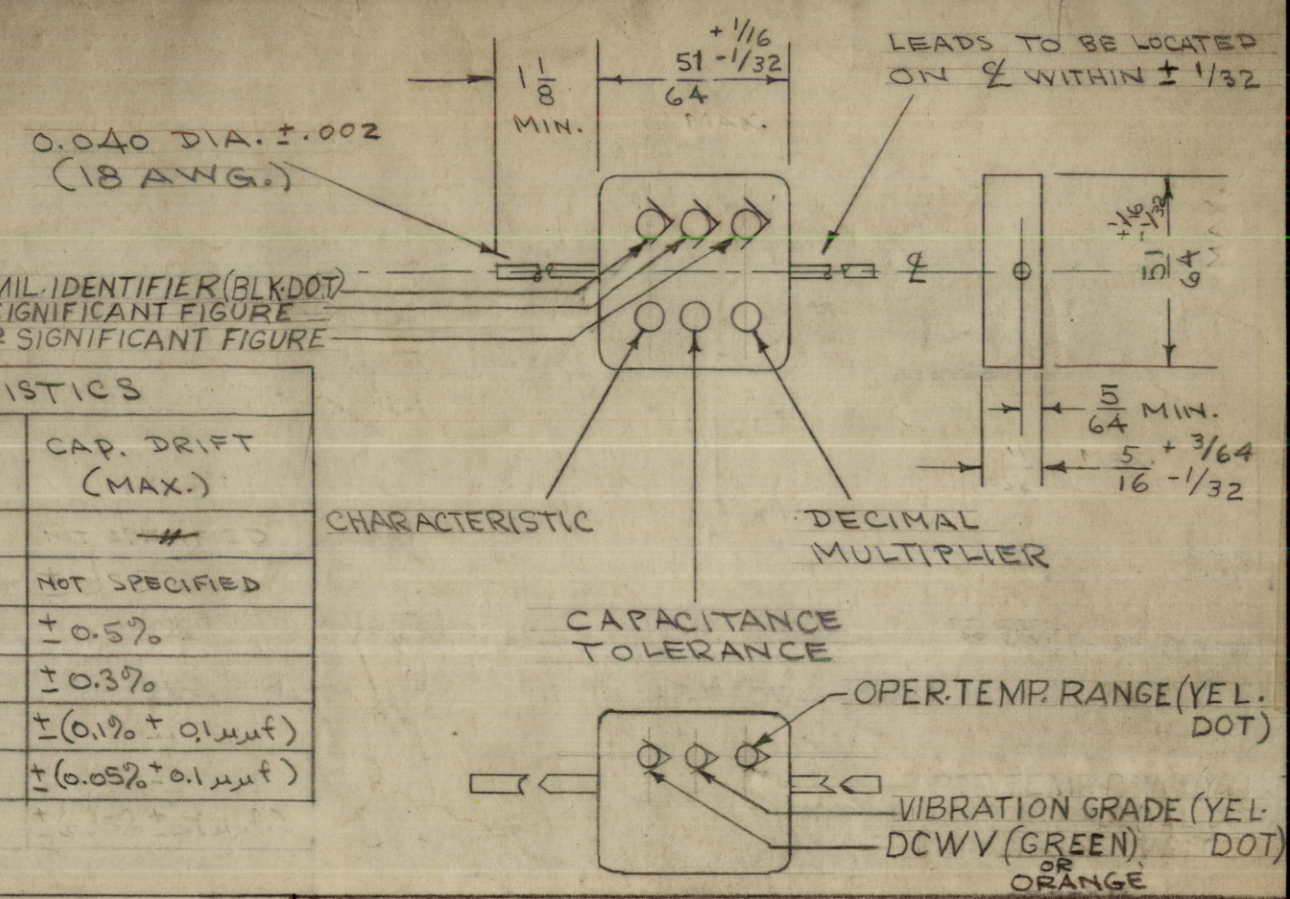 + 1/16
51 - 1/32
64
1 1/8
MIN.
LEADS TO BE LOCATED
ON ℄ WITHIN ± 1/32
0.040 DIA. ±.002
(18 AWG.)
MIL.IDENTIFIER(BLK.DOT)
SIGNIFICANT FIGURE
SIGNIFICANT FIGURE
℄
+1/16
-1/32
51
64
5/64 MIN.
5/16 + 3/64
- 1/32
ISTICS
CAP. DRIFT
(MAX.)
NOT SPECIFIED
± 0.5%
± 0.3%
±(0.1% ± 0.1 μμf)
±(0.05% ± 0.1 μμf)
CHARACTERISTIC
DECIMAL
MULTIPLIER
CAPACITANCE
TOLERANCE
OPER.TEMP. RANGE (YEL.
DOT)
VIBRATION GRADE (YEL.
DOT)
DCWV (GREEN)
OR
ORANGE